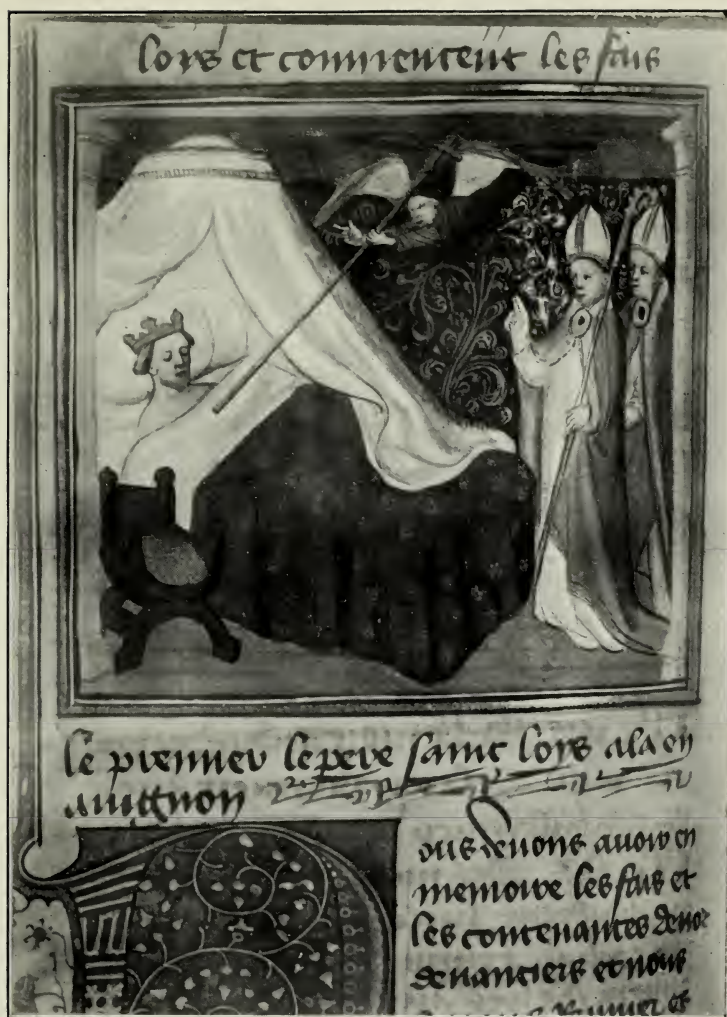 loys et commencent les fais
le premier le pere saint loys ala en
auignon
ous deuons auoir en
memoire les fais et
les contenances de noz
deuanciers et nous